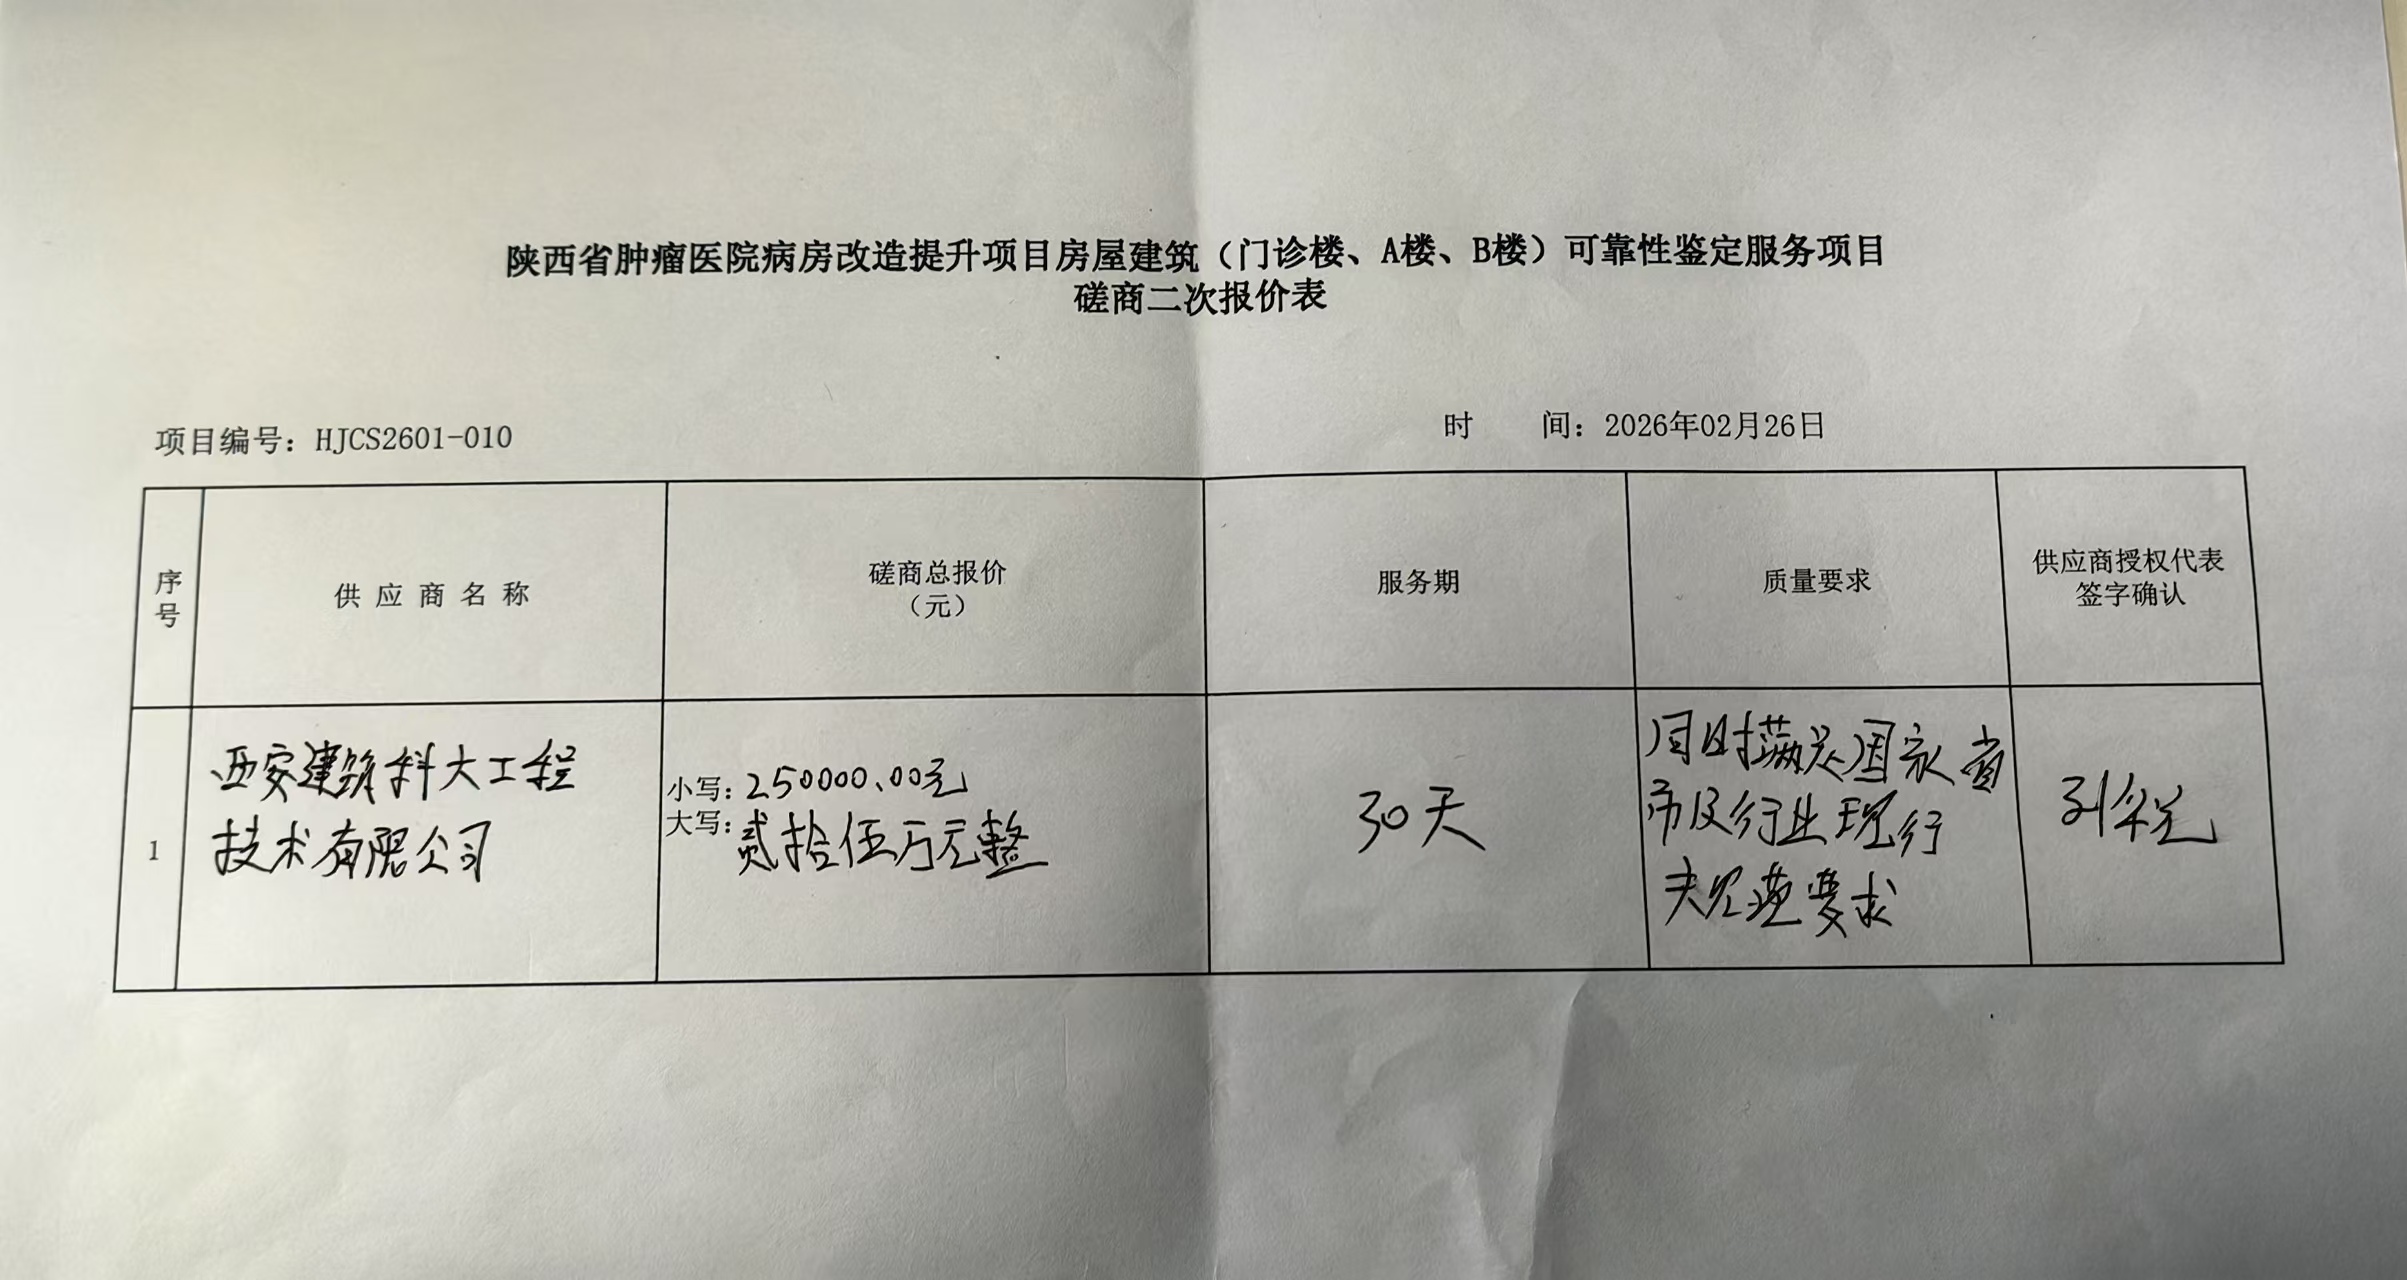 陕西省肿瘤医院病房改造提升项目房屋建筑（门诊楼、A楼、B楼）可靠性鉴定服务项目
磋商二次报价表
项目编号：HJCS2601-010
时 间：2026年02月26日
序号
供应商名称
磋商总报价
（元）
服务期
质量要求
供应商授权代表
签字确认
1
西安建筑科大工程
技术有限公司
小写：250000.00元
大写：贰拾伍万元整
30天
同时满足国家省
市及行业现行
规范要求